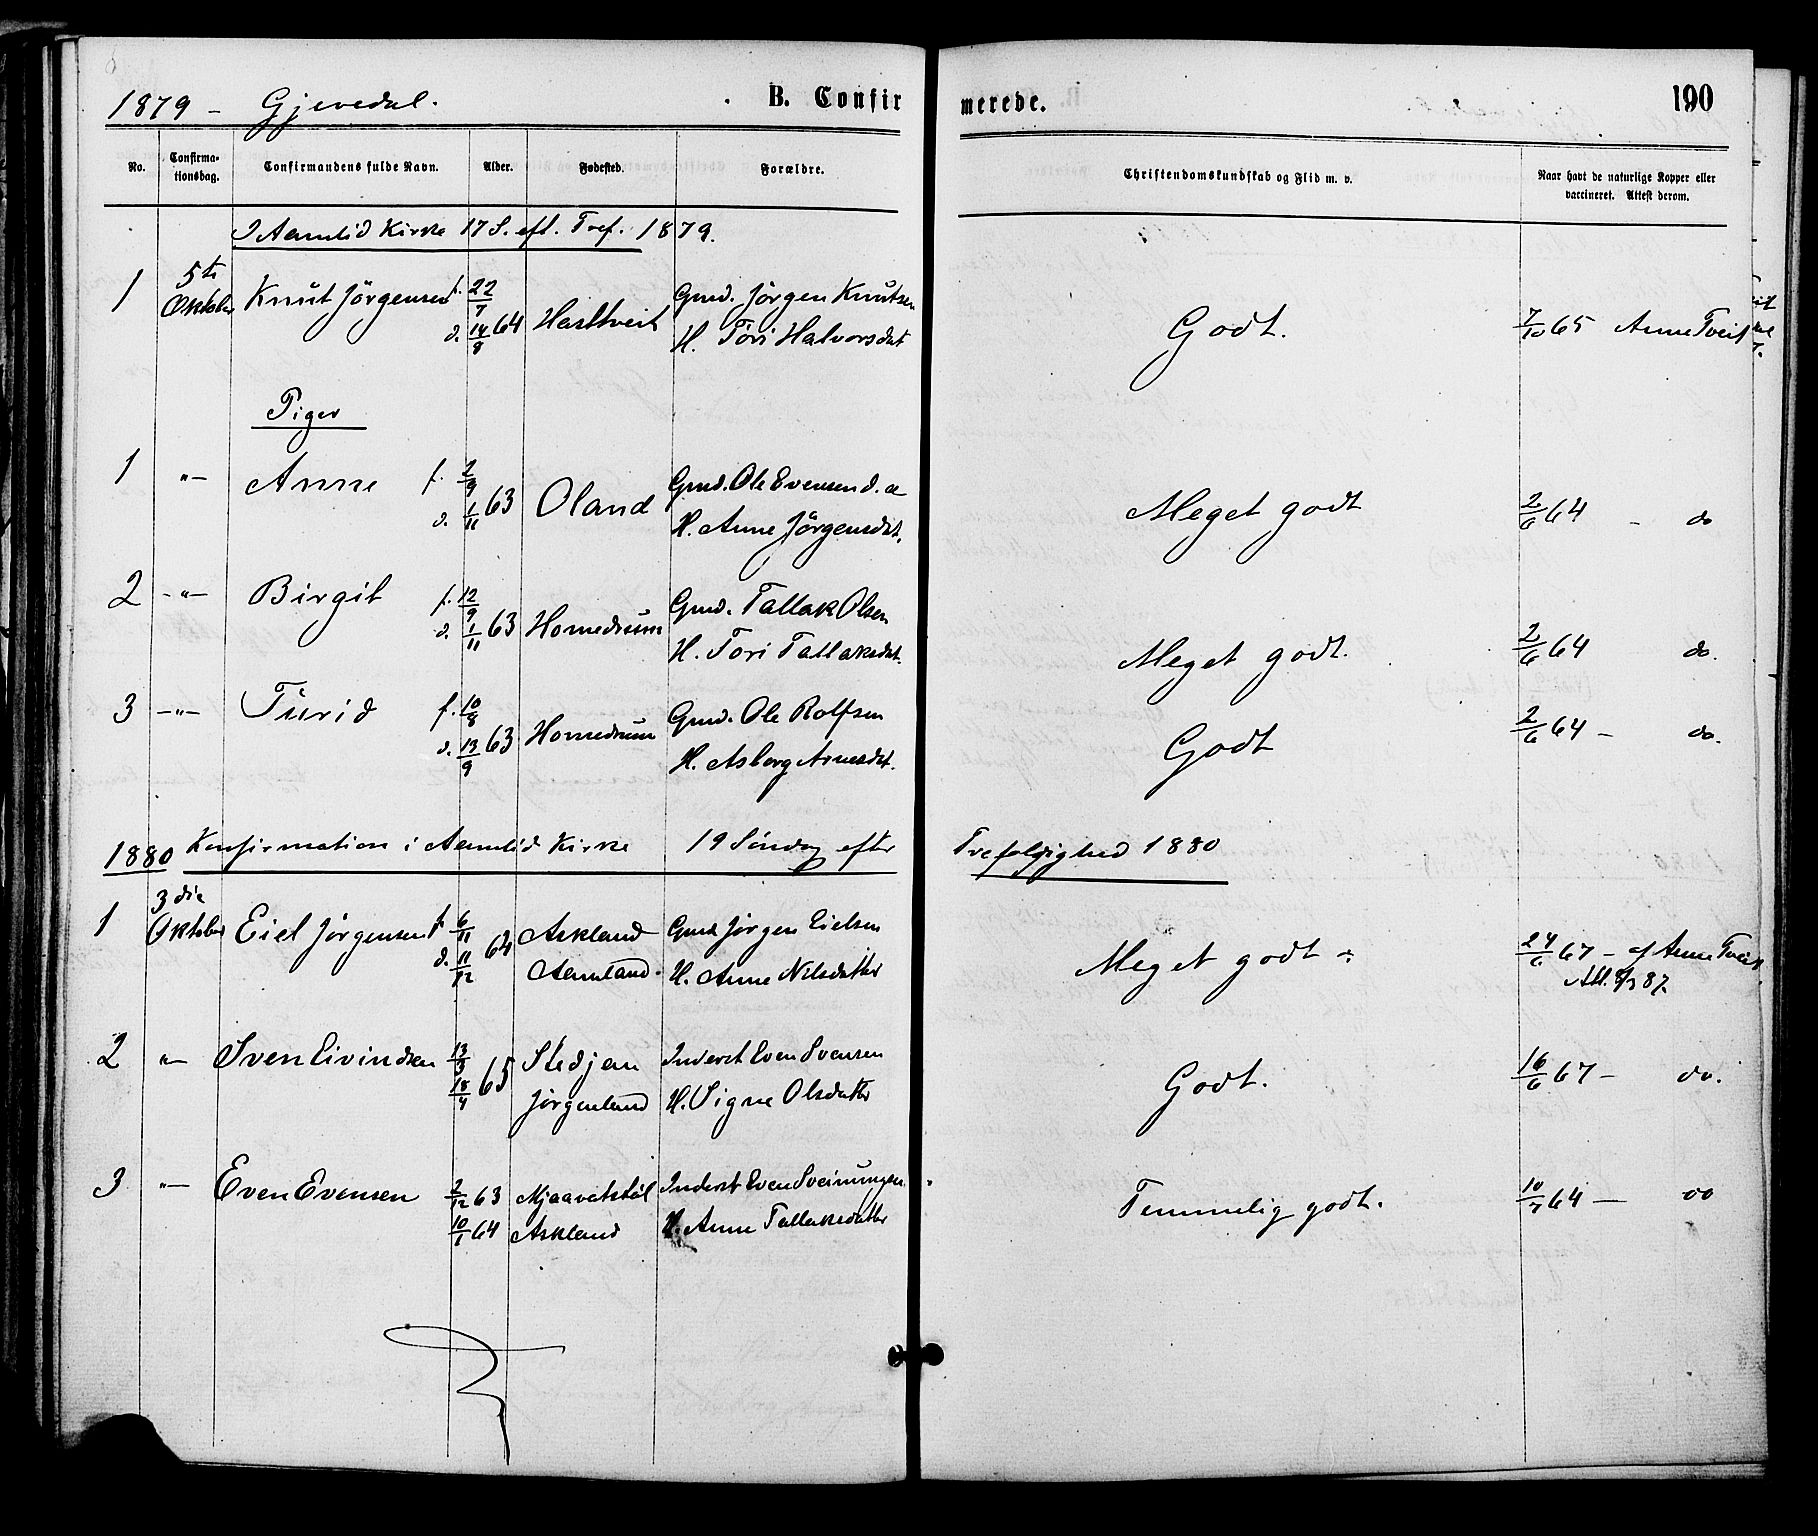 1879 - Gjevedal. B. Confirmerede. 190
No. Confirmationsdag. Confirmandens fulde Navn. Alder. Fødested. Forældre. Christendomskundskab og Flid m. v. Naar havt de naturlige Kopper eller vaccineret. Attest derom.
I Aamlid Kirke 17 S. eft. Tref. 1879.
1 5te Oktober Knut Jørgensen f. 22/7 d. 14/8 64 Hasltveit Gmd. Jørgen Knutsen H. Tori Halvorsdat Godt. 7/10 65 Anne Tveit
Piger
1 "— Anne f. 2/9 d. 1/11 63 Oland Gmd. Ole Evensen d. æ H. Anne Jørgensdat. Meget godt 2/6 64 - do
2 -"- Birgit f. 12/9 d. 1/11 63 Homedrum Gmd. Tallak Olsen H. Tori Tallaksdat. Meget godt. 2/6 64 do.
3 -"- Turid f. 10/8 d. 13/9 63 Homedrum Gmd. Ole Rolfsen H. Asborg Arnesdat. Godt 2/6 64 - do.
1880 Konfirmation i Aamlid Kirke 19 Søndag efter Trefoldighed 1880
1 3die Oktober Eiel Jørgensen f. 6/11 d. 11/12 64 Askland Aamland. Gmd Jørgen Eielsen H. Anne Nilsdatter Meget godt 24/6 67 - af Anne Tveit
Att. 87.
2 "— Sven Eivindsen 13/3 18/4 65 Stedjan Jørgenland Inderst Even Svensen H. Signe Olsdatter Godt. 16/6 67 - do.
3 "— Even Evensen 2/12 63 10/1 64 Mjaavatstøl Askland Inderst Even Sveinungsen H. Anne Tallaksdatter Temmelig godt. 10/7 64 — do